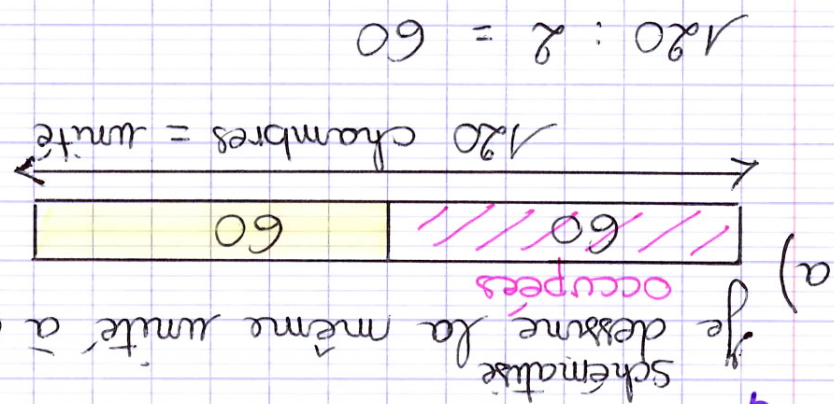 schématise
Je dessine la même unité à
occupées
a)
60 60
120 chambres = unité
120 : 2 = 60